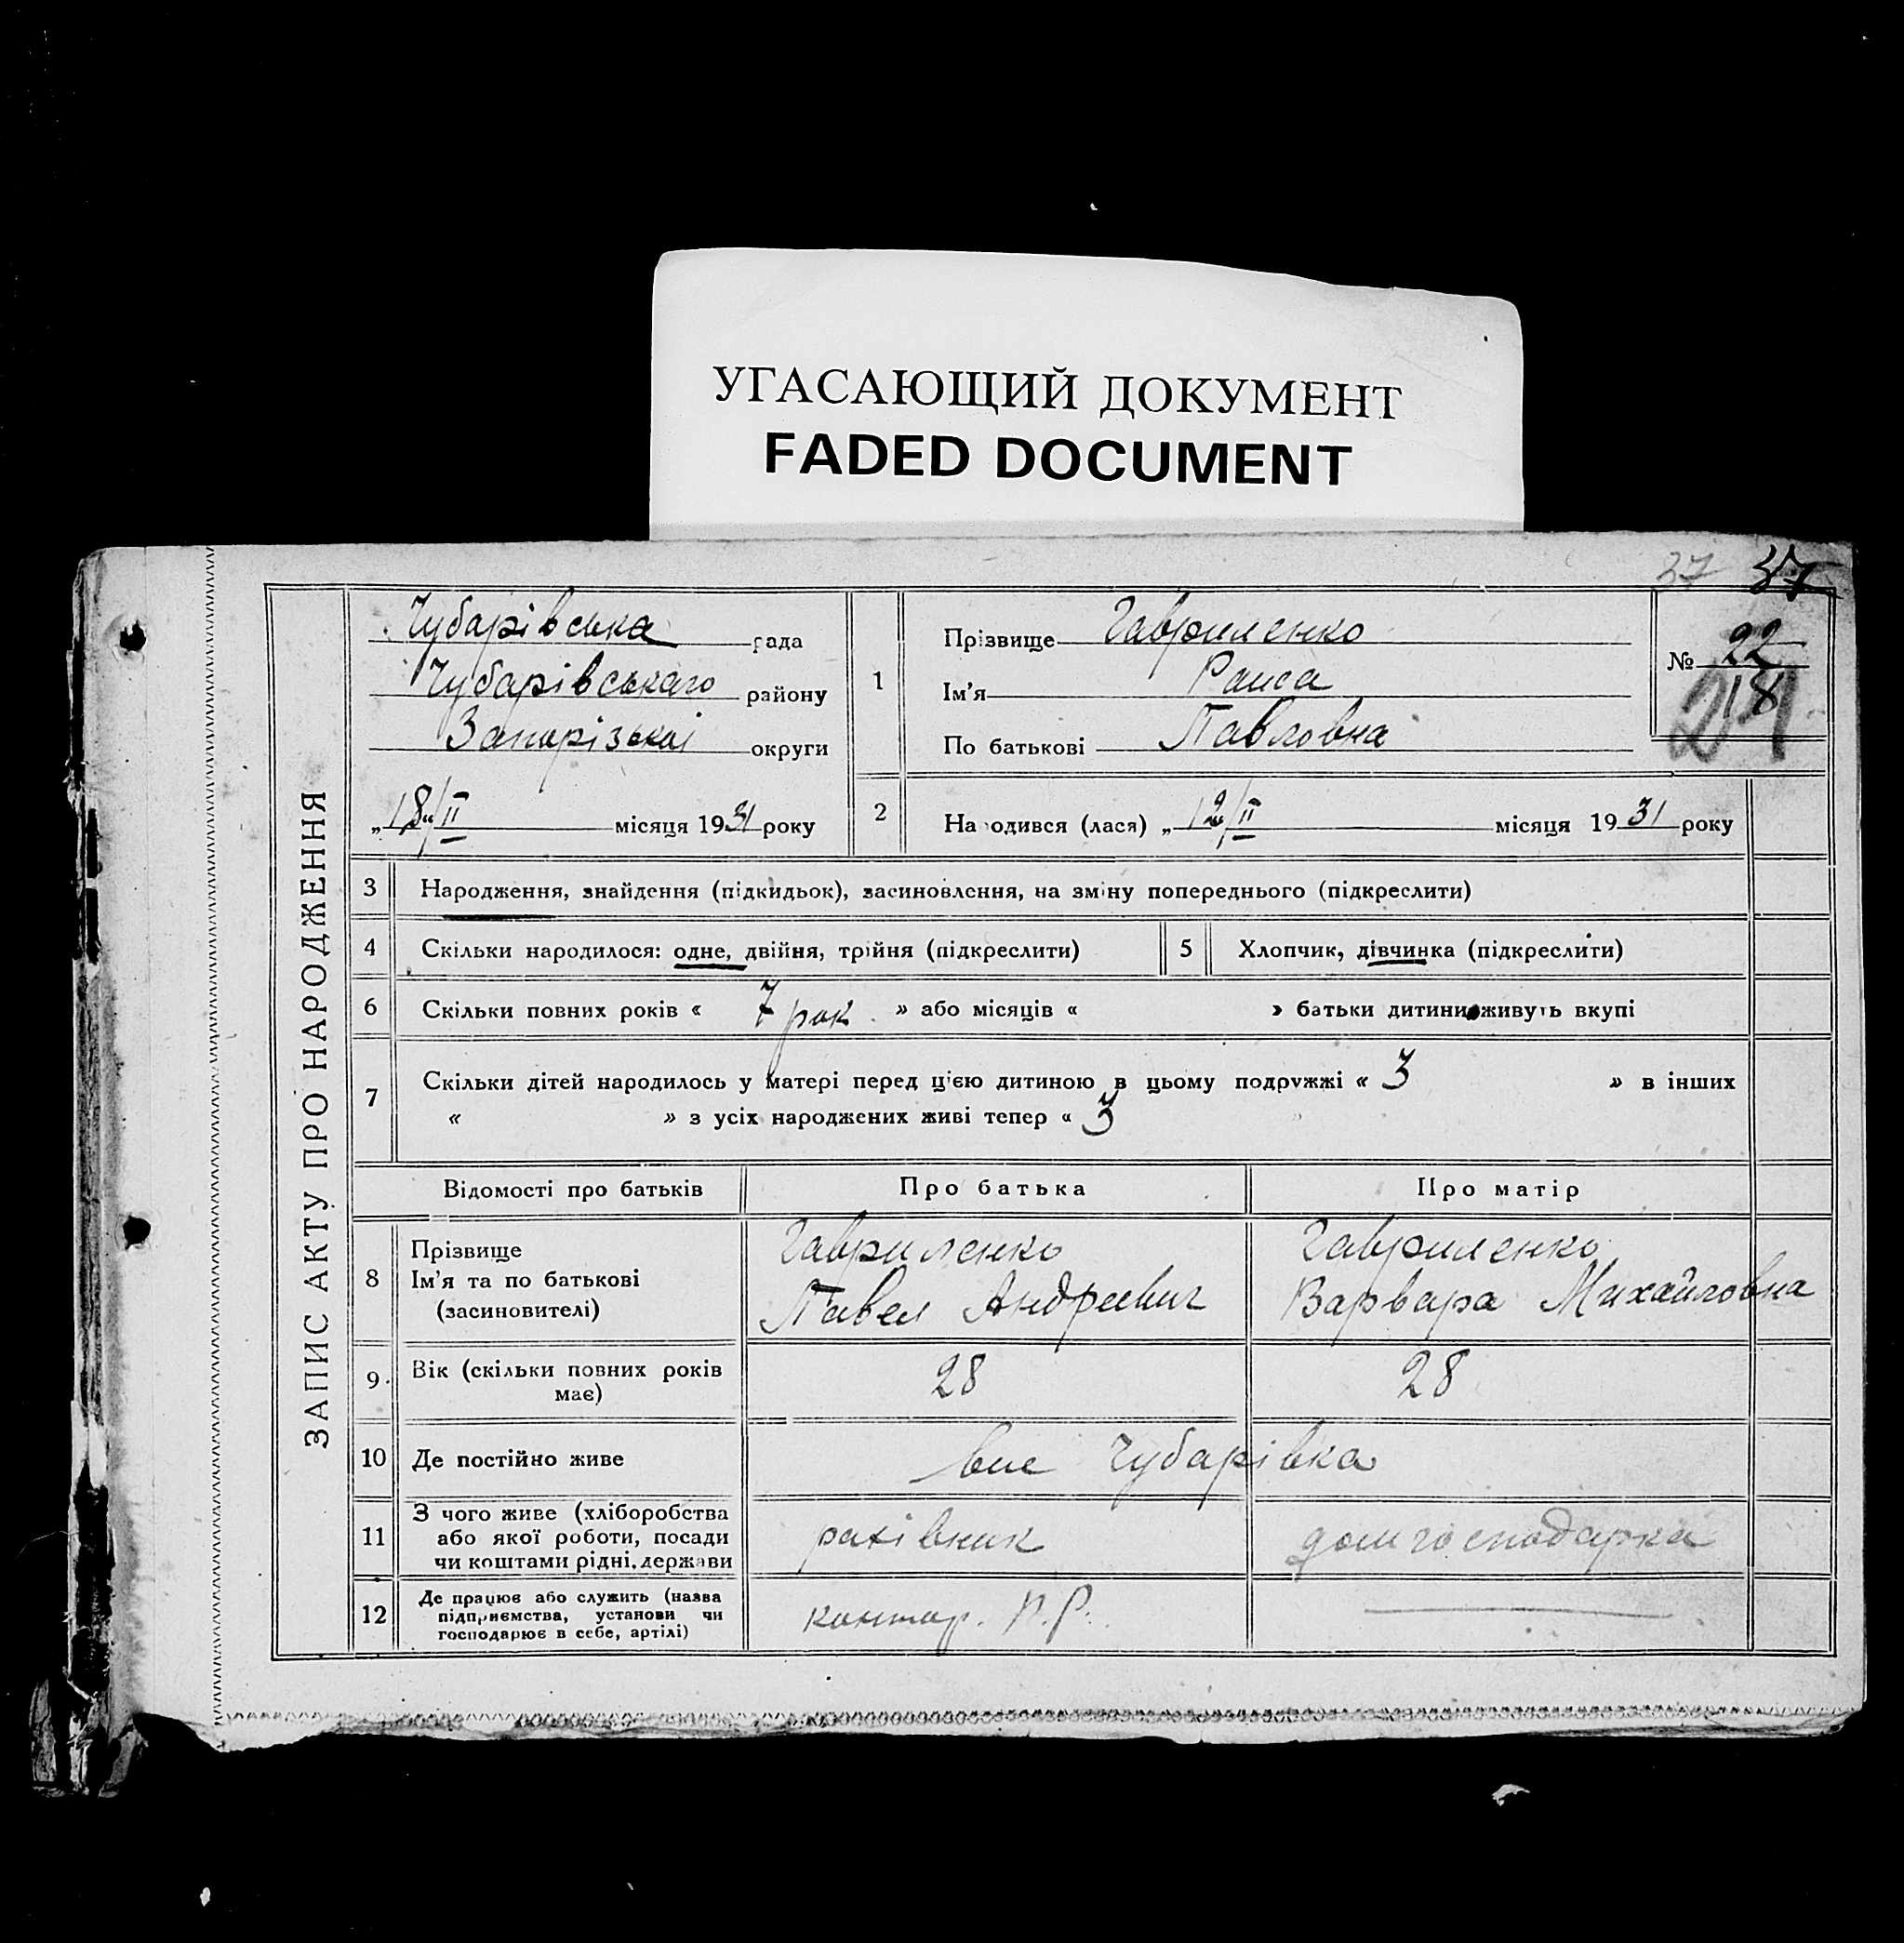 УГАСАЮЩИЙ ДОКУМЕНТ
FADED DOCUMENT
37 37
ЗАПИС АКТУ ПРО НАРОДЖЕННЯ
Чубарівська рада
Чубарівського району
Запорізької округи
„18"/II місяця 1931 року
1
Прізвище Гавриленко
Ім'я Раиса
По батькові Павловна
№ 22
18
21
2 Народився (лася) „12"/II місяця 1931 року
3 Народження, знайдення (підкидьок), засиновлення, на зміну попереднього (підкреслити)
4 Скільки народилося: одне, двійня, трійня (підкреслити) 5 Хлопчик, дівчинка (підкреслити)
6 Скільки повних років « 7 рок » або місяців « » батьки дитини живуть вкупі
7 Скільки дітей народилось у матері перед цією дитиною в цьому подружжі « 3 » в інших
« » з усіх народжених живі тепер « 3
Відомості про батьків Про батька Про матір
8 Прізвище Гавриленко Гавриленко
Ім'я та по батькові Павел Андреевич Варвара Михайловна
(засиновителі)
9 Вік (скільки повних років 28 28
має)
10 Де постійно живе Чубарівка
11 З чого живе (хліборобства рахівник домгосподарка
або якої роботи, посади
чи коштами рідні, держави
12 Де працює або служить (назва контор. Р.Р.
підприємства, установи чи
господарює в себе, артілі)